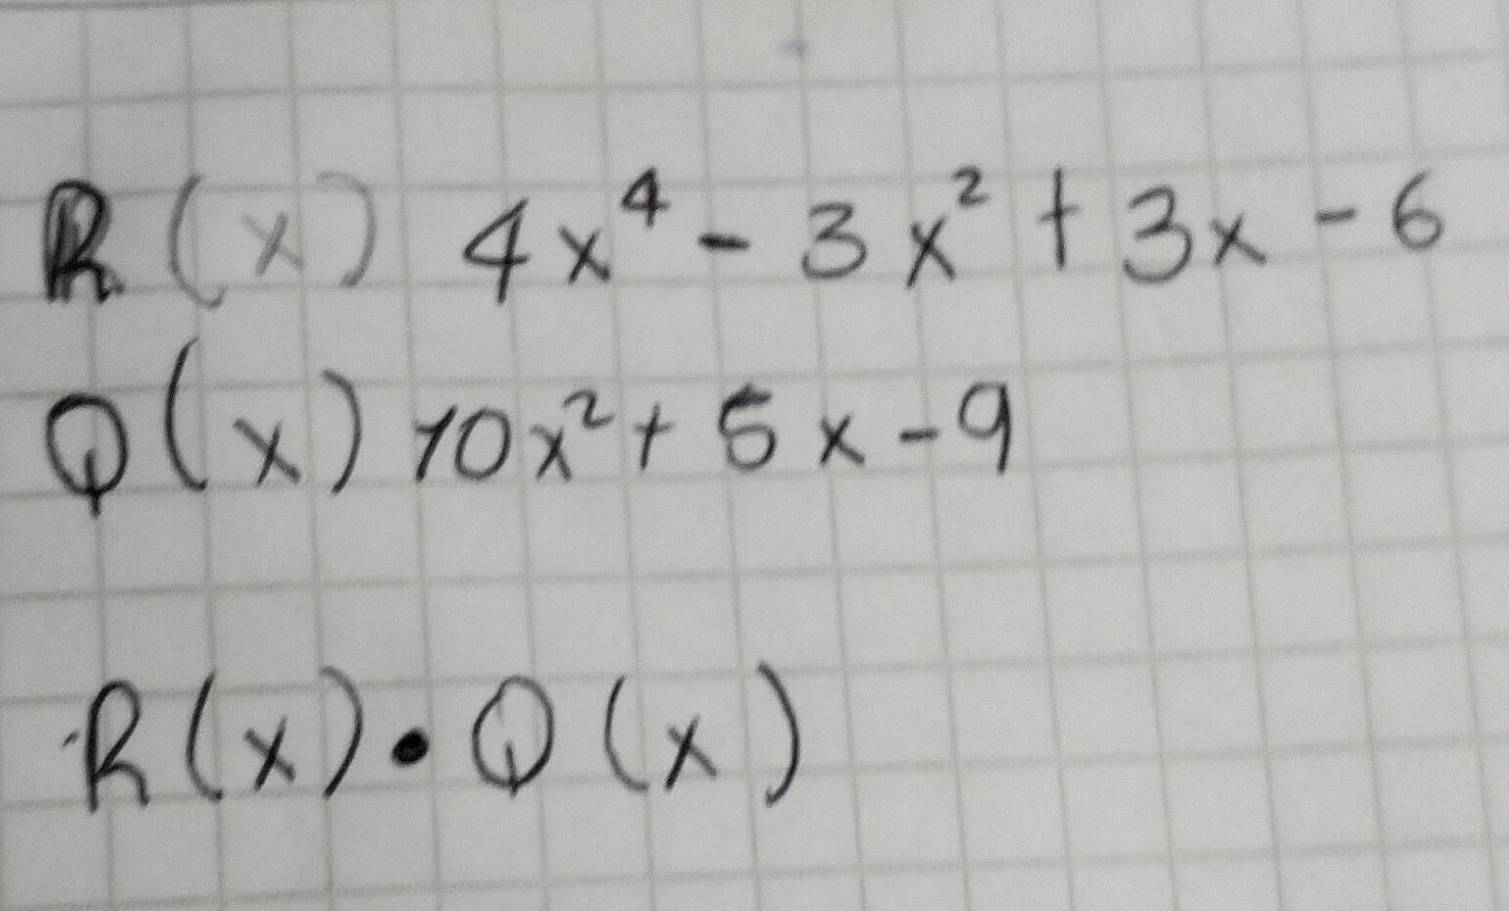 R(x) 4x⁴ - 3x² + 3x - 6
Q(x) 10x² + 5x - 9
R(x) • Q(x)